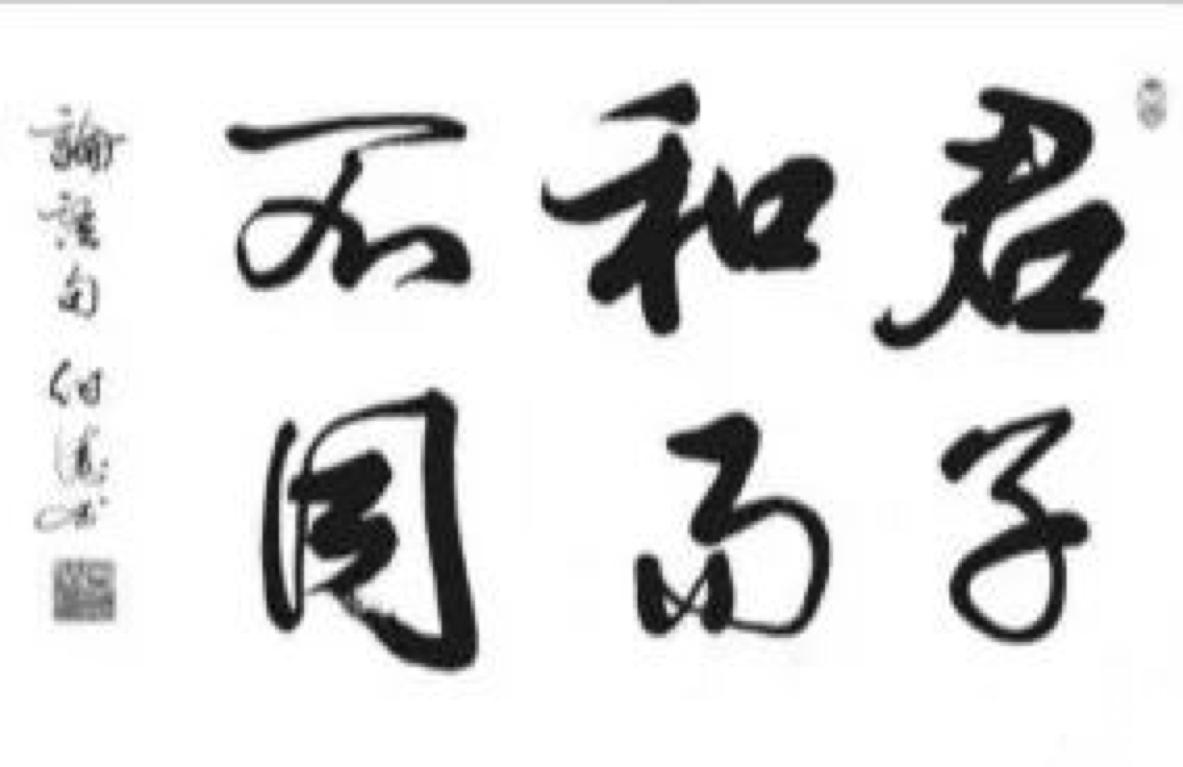 君子
和而
不同
論語句